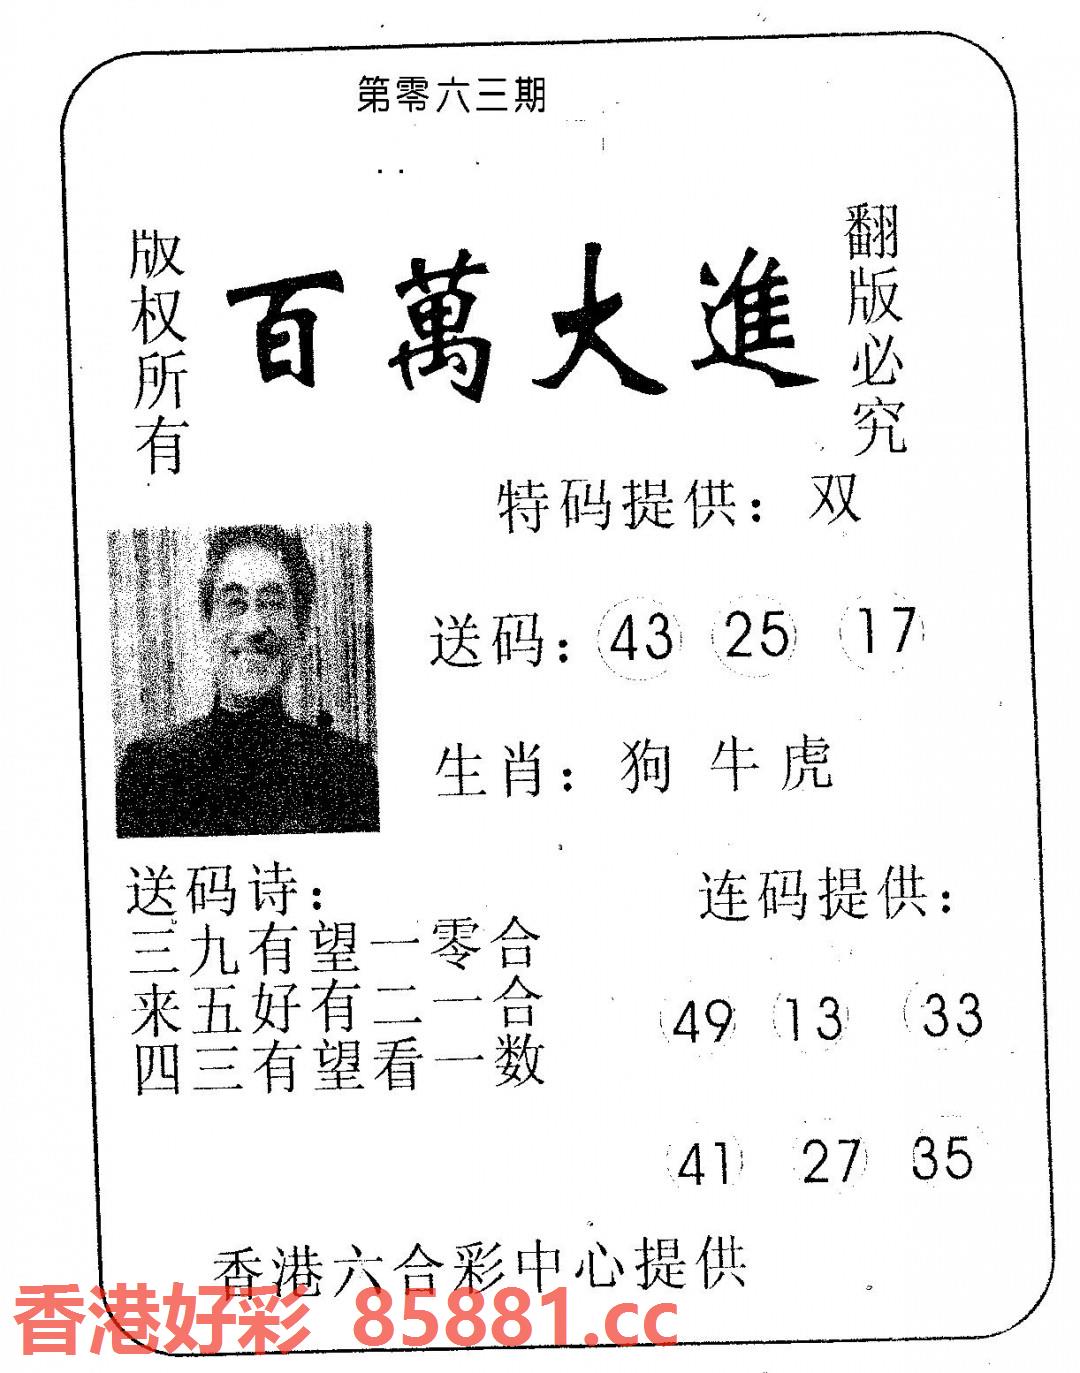 第零六三期
版权所有
百萬大進
翻版必究
特码提供：双
送码：43 25 17
生肖：狗牛虎
送码诗：
三九有望一零合
来五好有二一合
四三有望看一数
连码提供：
49 13 33
41 27 35
香港六合彩中心提供
香港好彩 85881.cc